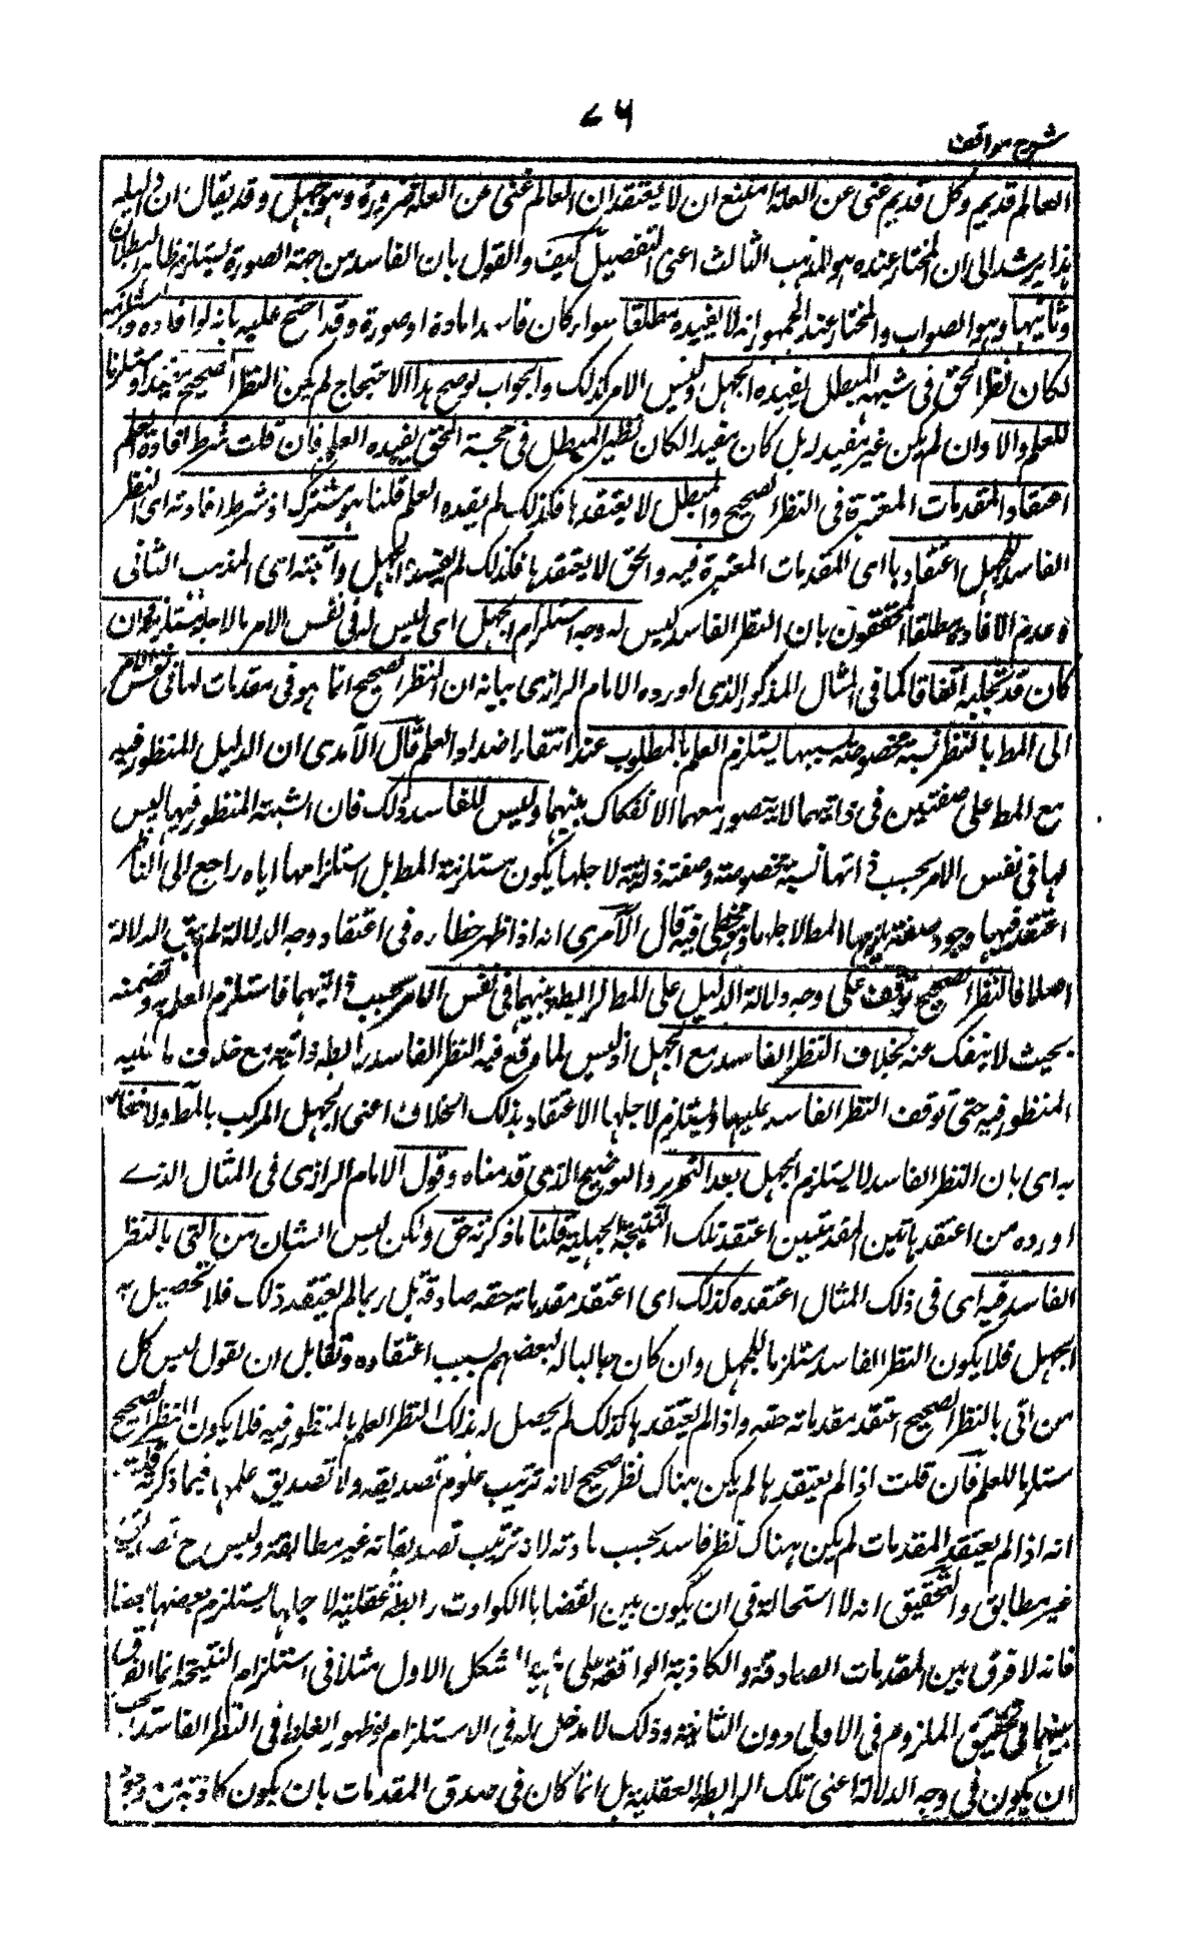 ٧٦
شرح مواقف
العالم قديم وكل قديم غنى عن العلة امتنع ان لا يعتقد ان العالم غنى عن العلة ضرورة وهو جهل وقد يقال ان دليله
هذا يرشد الى ان المختار عنده هو المذهب الثالث اعنى التفصيل كيف والقول بان الفاسد من جهة الصورة يستلزم ظاهر البطلان
وثانيها وهو الصواب والمختار عند الجمهور انه لا يفيده مطلقا سواء كان فاسدا مادة او صورة وقد احتج عليه بانه لو افاده واستلزمه
لكان نظر المحق فى شبهة المبطل يفيده الجهل وليس الامر كذلك والجواب لو صح هذا الاحتجاج لم يكن النظر الصحيح مفيدا ومستلزما
للعلم والا وان لم يكن غير مفيد له بل كان مفيدا لكان نظر المبطل فى حجة المحق يفيده العلم فان قلت شرط افادة العلم
اعتقاد المقدمات المعتبرة فى النظر الصحيح والمبطل لا يعتقدها فكذلك لم يفده العلم قلنا هو مشترك اذ شرط افادته اى النظر
الفاسد للجهل اعتقادها اى المقدمات المعتبرة فيه والمحق لا يعتقدها فكذلك لم يفده الجهل واثبته اى المذهب الثانى
وهو عدم الافادة مطلقا المحققون بان النظر الفاسد ليس له وجه استلزام الجهل اى ليس له فى نفس الامر ما لاجله يستلزمه وان
كان قد يجلبه اتفاقا كما فى المثال المذكور الذى اورده الامام الرازى بيانه ان النظر الصحيح انما هو فى مقدمات لها فى نفس الامر
الى المط بالنظر نسبة مخصوصة بسببها يستلزم العلم بالمطلوب عند انتفاء اضداد العلم قال الآمدى ان الدليل المنظور فيه
مع المط على صفتين فى ذاتيهما لا يتصور معهما الانفكاك بينهما وليس للفاسد ذلك فان الشبهة المنظور فيها ليس
لها فى نفس الامر بحسب ذاتها نسبة مخصوصة وصفة ذاتية لاجلها يكون مستلزمة للمط بل استلزامها اياه راجع الى الناظر
اعتقد فيها وجود صفة يلزمها المط لاجلها وهو مخطى فيه قال الآمدى انه اذا ظهر خطاءه فى اعتقاد وجه الدلالة لم يبق الدلالة
اصلا فالنظر الصحيح توقف على وجه دلالة الدليل على المط لرابطة بينهما فى نفس الامر بحسب ذاتيهما فاستلزم العلم به وتضمنه
بحيث لا ينفك عنه بخلاف النظر الفاسد مع الجهل اذ ليس لما وقع فيه النظر الفاسد رابطة ذاتية مع خلاف ما عليه
المنظور فيه حتى توقف النظر الفاسد عليها ويستلزم لاجلها الاعتقاد بذلك الخلاف اعنى الجهل المركب بالمط ولا خفاء
به اى بان النظر الفاسد لا يستلزم الجهل بعد التحرير والتوضيح الذى قدمناه وقول الامام الرازى فى المثال الذى
اورده من اعتقد هاتين المقدمتين اعتقد تلك النتيجة الجهلية قلنا ما ذكرته حق ولكن ليس الشان من اتى بالنظر
الفاسد فيه اى فى ذلك المثال اعتقده كذلك اى اعتقد مقدماته حقة صادقة بل ربما لم يعتقد ذلك فلا يحصيل له
الجهل فلا يكون النظر الفاسد مستلزما للجهل وان كان جالبا له لبعضهم بسبب اعتقاده ولقائل ان يقول ليس كل
من اتى بالنظر الصحيح اعتقد مقدماته حقة واذا لم يعتقدها كذلك لم يحصل له بذلك النظر العلم بالمنظور فيه فلا يكون النظر الصحيح
مستلزما للعلم فان قلت اذا لم يعتقدها لم يكن هناك نظر صحيح لانه ترتيب علوم تصديقية ولا تصديق فيما ذكرته قلت
انه اذا لم يعتقد المقدمات لم يكن هناك نظر فاسد بحسب مادته لانه ترتيب تصديقات غير مطابقة وليس ح تصديق
غير مطابق والتحقيق انه لا استحالة فى ان يكون بين القضايا الكواذب رابطة عقلية لاجلها يستلزم بعضها بعضا
فانه لا فرق بين المقدمات الصادقة والكاذبة الواقعة على هيئة الشكل الاول مثلا فى استلزام النتيجة انما الفرق
بينهما فى تحقيق الملزوم فى الاولى دون الثانية وذلك لا مدخل له فى الاستلزام فظهور الغلط فى النظر الفاسد لا يجب
ان يكون فى وجه الدلالة اعنى تلك الرابطة العقلية بل انما كان فى صدق المقدمات بان يكون كاذبة مع وجود